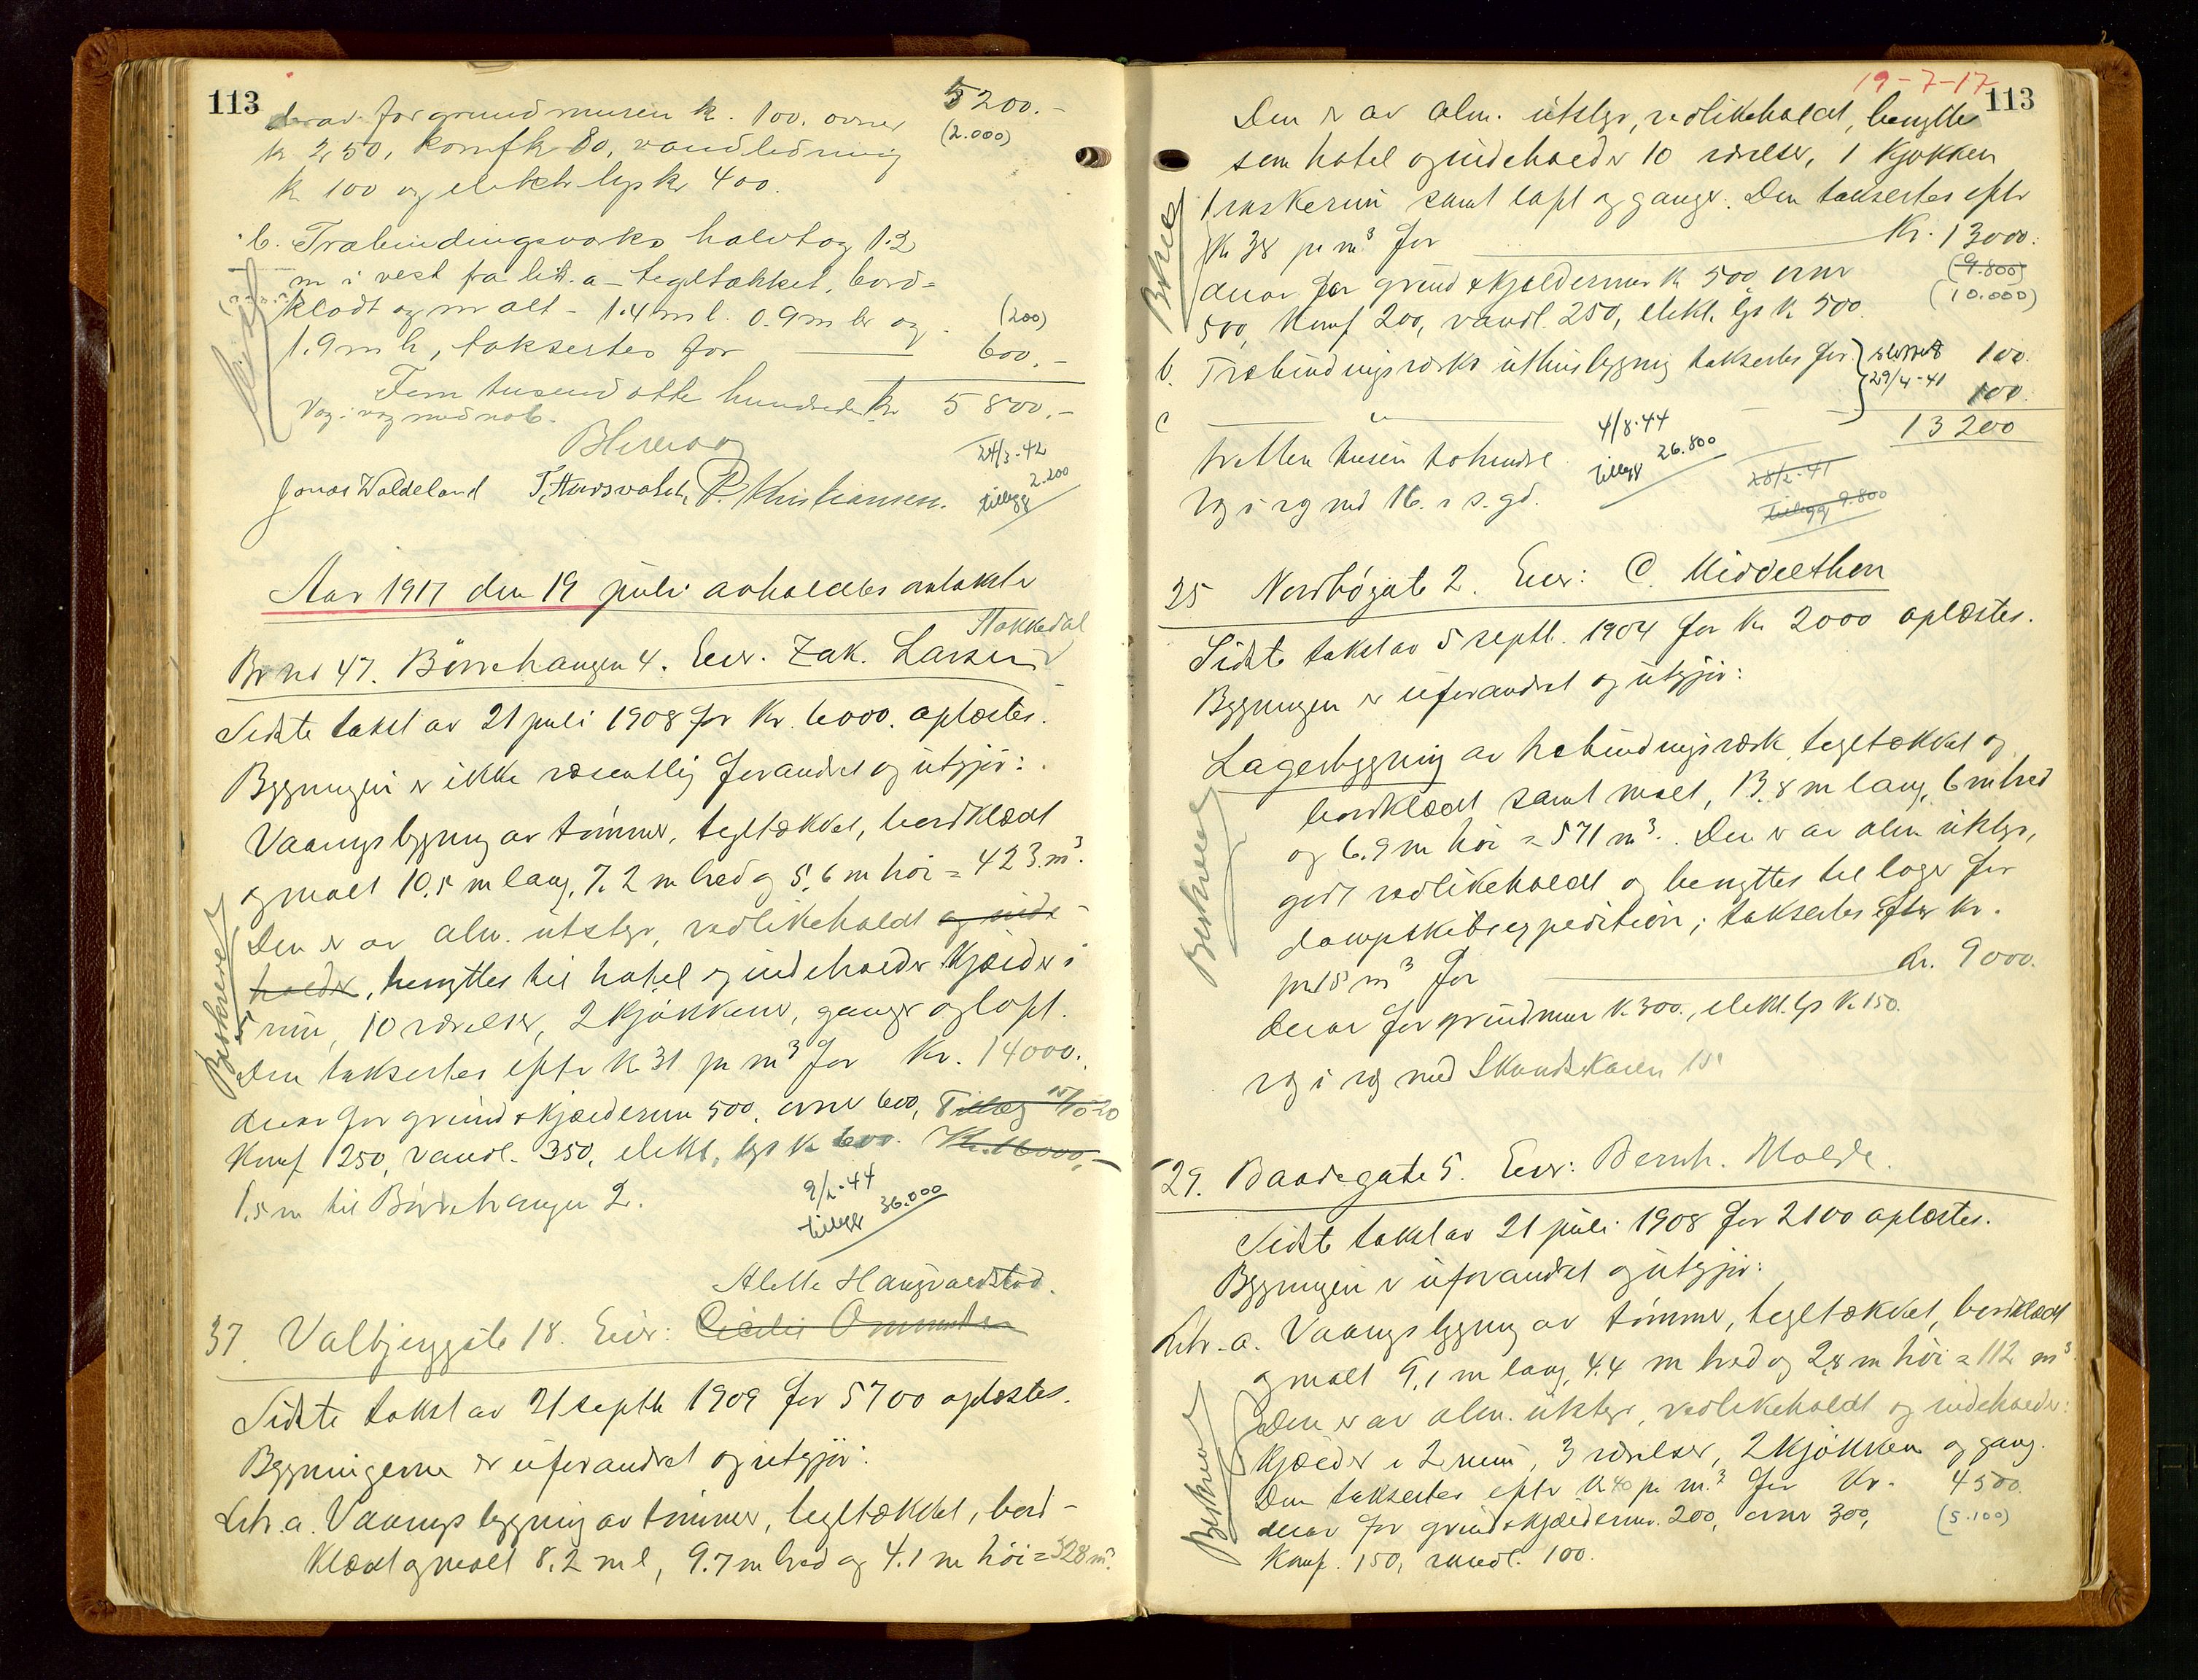 113
derav for grundmuren k. 100, ovner 5200.-
kr 250, komf kr 80, vandledning (2.000)
k 100 og elektr lys kr 400.
b. Træbindingsverks halvtag 1.2
m i vest fra litr. a - tegltækket, bord=
klædt og malt - 1.4 m l. 0.9 m br og (200)
1.9 m h, taksertes for 600.-
Fem tusend otte hundrede kr 5800.-
Væg i væg med nab.
24/3-42
tillegg 2.200
Jonas Waldeland P. Kristiansen.
Aar 1917 den 19 juli avholdtes omtakst
Stokkedal
Br no 47. Børehaugen 4. Eier. Zak. Larsen
Sidste takst av 21 juli 1908 for Kr. 6000. oplæstes.
Bygningen er ikke væsentlig forandret og utgjør:
Vaaningsbygning av tømmer, tegltækket, bordklædt
og malt 10,5 m lang, 7,2 m bred og 5,6 m høi = 423 m³.
Den er av alm. utstyr, vedlikeholdt og inde-
holder, benyttes til hotel og indeholder kjælder i
5 rum, 10 værelser, 2 kjøkkener, ganger og loft.
Den taksertes efter kr 31 pr m³ for Kr. 14000.
derav for grund & kjældermur 500, ovner 600, Tillæg 15/10-20
Komf 250, vandl. 350, elekt. lys k 600. Kr. 16000.-
1,5 m til Børehaugen 2.
9/2-44
tillegg 36.000
Beskrevet
Alette Haugvaldstad.
37. Valbjerggate 18. Eier: Cecilie Ommundsen
Sidste takst av 21 septbr 1909 for 5700 oplæstes.
Bygningerne er uforandret og utgjør:
Litr. a. Vaaningsbygning av tømmer, tegltækket, bord-
klædt og malt 8.2 m l, 9.7 m bred og 4.1 m høi = 328 m³.
19-7-17
113
Den er av alm. utstyr, vedlikeholdt, benyttes
som hotel og indeholder 10 værelser, 1 kjøkken
1 vaskerum samt loft og ganger. Den taksertes efter
Kr 38 pr m³ for Kr. 13000.
derav for grund & kjældermur k 500, ovner (9.800)
500, Komf 200, vandl. 250, elekt. lys k 500. (10.000)
b. Træbindingsverks uthusbygning taksertes for sløifet 100.
29/4-41
c 100.
13200
tretten tusen tohundre
4/8-44
tillegg 26.800
28/2-41
tillegg 9.800
væg i væg med 16. i s. gd.
25 Nordbøgate 2. Eier: C. Middelthon
Sidste takst av 5 septb. 1904 for kr 2000 oplæstes.
Bygningen er uforandret og utgjør:
Lagerbygning av træbindingsverk, tegltækket og
bordklædt samt malt, 13,8 m lang, 6 m bred
og 6.9 m høi = 571 m³. Den er av alm utstyr,
godt vedlikeholdt og benyttes til lager for
dampskibsexpedition; taksertes efter kr.
15 m³ for Kr. 9000.
derav for grundmur k. 300., elekt. lys k. 150.
væg i væg med Skandsekaien 15
Beskrevet
29. Baadegate 5. Eier: Bernh. Molde.
Sidste takst av 21 juli 1908 for 2100 oplæstes.
Bygningen er uforandret og utgjør:
Litr. a. Vaaningsbygning av tømmer, tegltækket, bordklædt
og malt 9,1 m lang, 4.4 m bred og 2,8 m høi = 112 m³
Den er av alm. utstyr, vedlikeholdt og indeholder:
Kjælder i 2 rum, 3 værelser, 2 kjøkken og gang.
Den taksertes efter kr 40 pr m³ for Kr. 4500.
derav for grund & kjældermur. 200, ovner 300, (5.100)
Komf. 150, vandl. 100.
Beskrevet